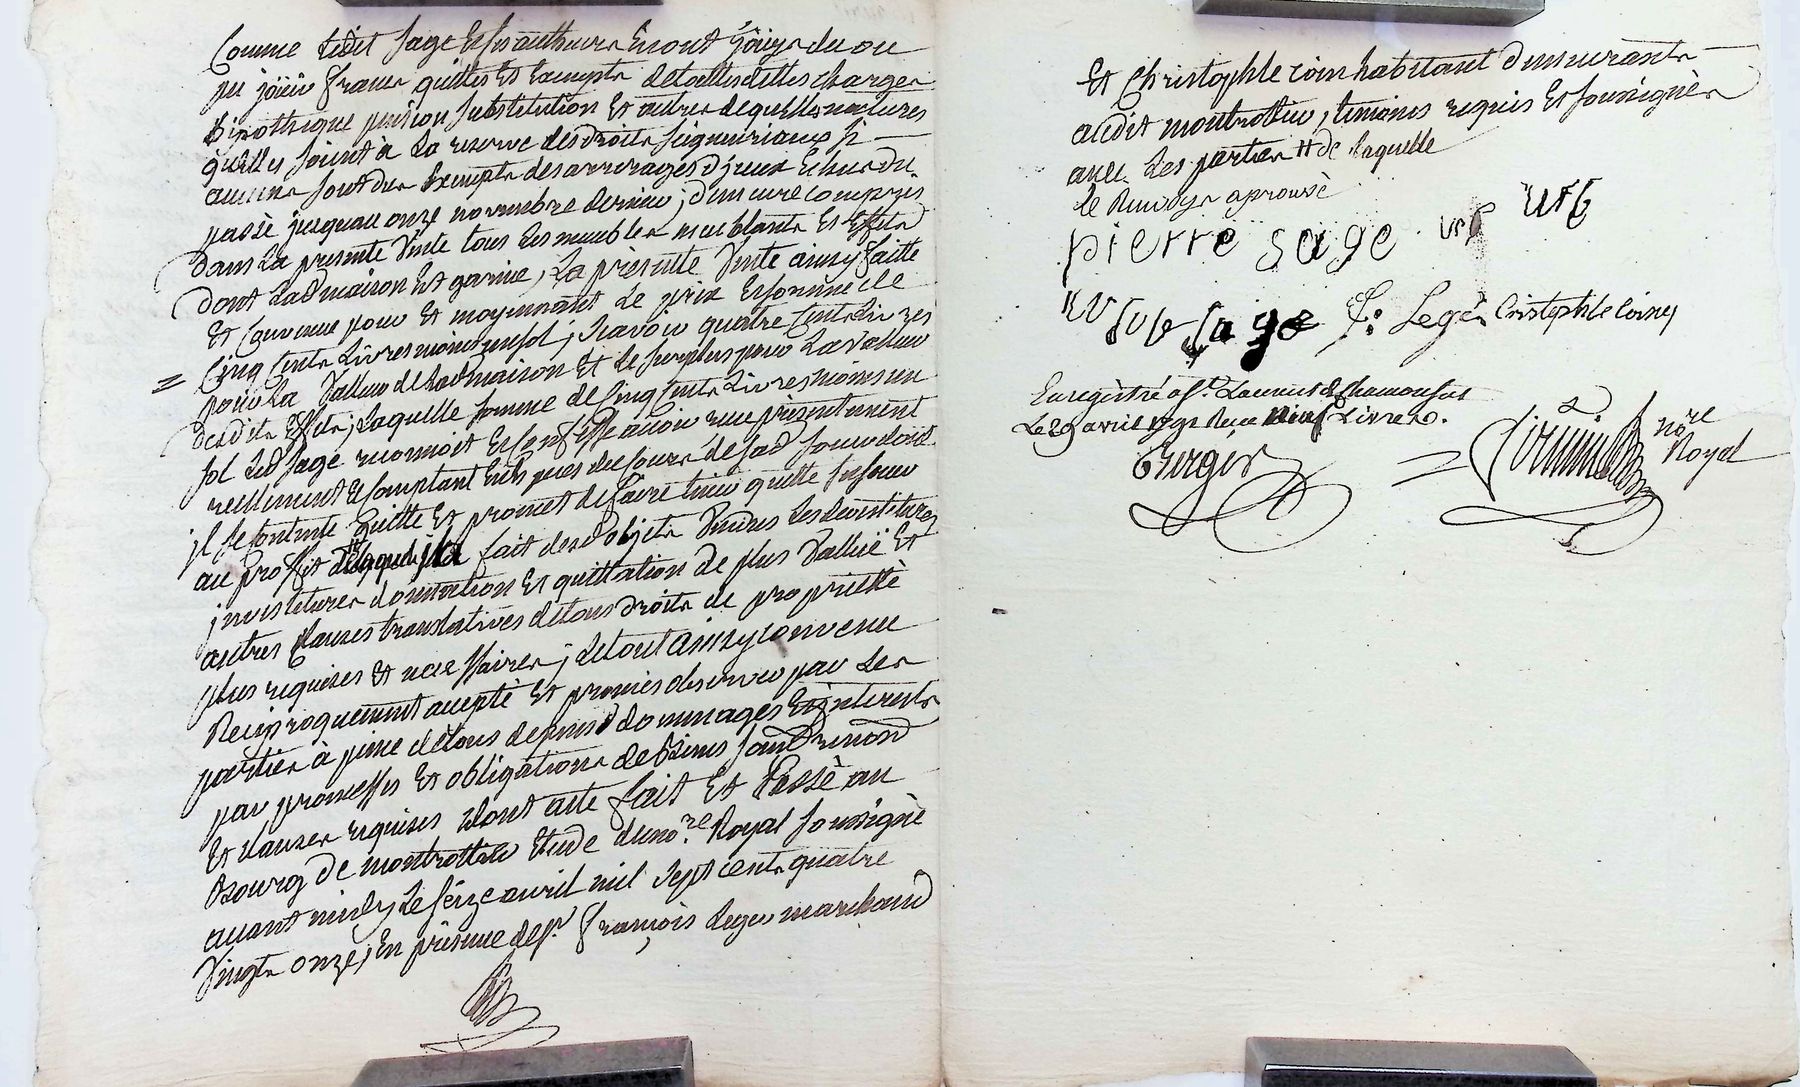 Comme ledit Sage et ses autheurs en ont joüys du ou
pu joüir franes quittes et Exempts de toutes dettes charges
hipothique pention substitution et autres de quelles natures
quelles soient a La reserve des droits seigneuriaux si
aucuns sont dus Exempts des arrerages d'jceux Echus du
passé jusquau onze novembre dernier; demeure compris
dans La presente Vente tous les meubles meublants et Effets
dont Lad maison Est garnie, La présente Vente ainsy faitte
et Convenue pour et moyennant Le prix et somme de
Cinq Cents Livres moins un sol; scavoir quatre Cents Livres
pour La Valleur de Lad maison et le surplus pour La Valleur
desdits Effets; Laquelle somme de Cinq Cents Livres moins un
sol Led Sage reconnoit et Confesse avoir reue présentement
reellement et Comptant En Especes du Cours de lad somme dont
jl se Contente quitte et promet de faire tenir quitte
au proffit fait desd objets Vendus Les devestitures
jnvestitures donnation et quittation de plus Vallüe et
autres Clauses translatives de tous droits de proprietté
plus requises et necessaires; Le tout ainsy convenu
Reciproquement accepté et promis observer par Les
parties à peine de tous depens dommages Et jnterests
par promesses et obligations de Biens
et clauses requises dont acte fait et Passé au
Bourg de montrottier Etude du no.re Royal soussigné
avant midy Le seize avril mil sept cents quatre
Vingts onze; En présence de sr. françois Leger marchand
Et Christophle coin habitant demeurants
audit montrottier, temoins requis et soussignés
avec Les parties # de laquelle
le Renvoy aprouvé
pierre sage
sage f: Legér Cristophle Coiney
Enregistré a St. Laurent de Chamousset
Le 29 avril 1791 Reçu neuf Livres.
Berger
no.re
Royal